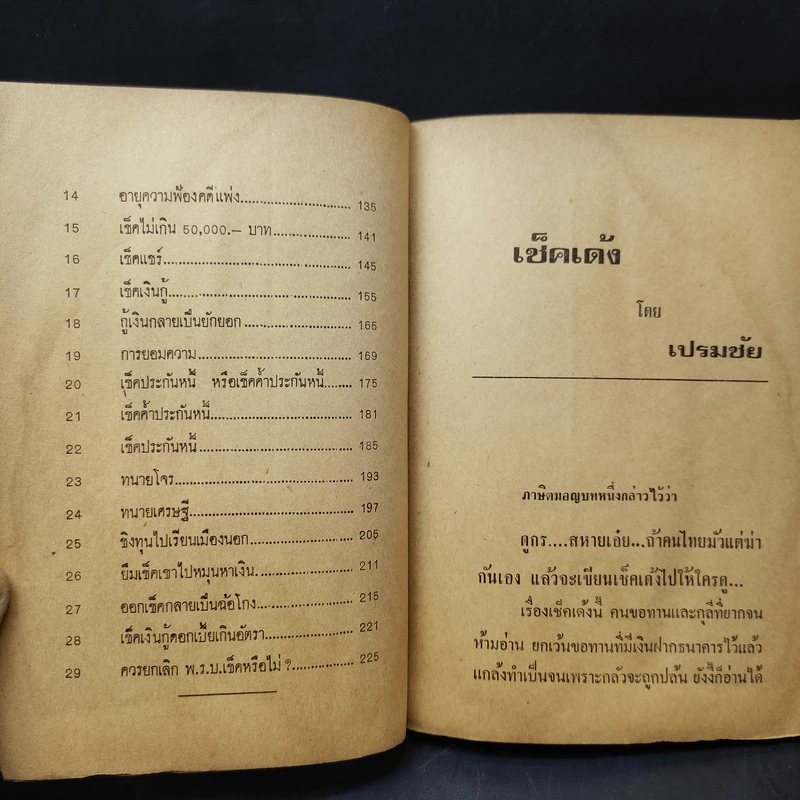 14 อายุความฟ้องคดีแพ่ง........................ 135
15 เช็คไม่เกิน 50,000.– บาท.................. 141
16 เช็คแชร์.......................................... 145
17 เช็คเงินกู้......................................... 155
18 กู้เงินกลายเป็นยักยอก........................ 165
19 การยอมความ.................................... 169
20 เช็คประกันหนี้ หรือเช็คค้ำประกันหนี้........ 175
21 เช็คค้ำประกันหนี้................................ 181
22 เช็คประกันหนี้.................................... 185
23 ทนายโจร.......................................... 193
24 ทนายเศรษฐี...................................... 197
25 ชิงทุนไปเรียนเมืองนอก....................... 205
26 ยืมเช็คเขาไปหมุนหาเงิน...................... 211
27 ออกเช็คกลายเป็นฉ้อโกง..................... 215
28 เช็คเงินกู้ดอกเบี้ยเกินอัตรา................... 221
29 ควรยกเลิก พ.ร.บ.เช็คหรือไม่ ?............... 225
เช็คเด้ง
โดย
เปรมชัย
ภาษิตมอญบทหนึ่งกล่าวไว้ว่า
ดูกร....สหายเอ๋ย...ถ้าคนไทยมัวแต่ฆ่า
กันเอง แล้วจะเขียนเช็คเด้งไปให้ใครดู...
เรื่องเช็คเด้งนี้ คนขอทานและกุลีที่ยากจน
ห้ามอ่าน ยกเว้นขอทานที่มีเงินฝากธนาคารไว้แล้ว
แกล้งทำเป็นจนเพราะกลัวจะถูกปล้น ยังงี้ก็อ่านได้